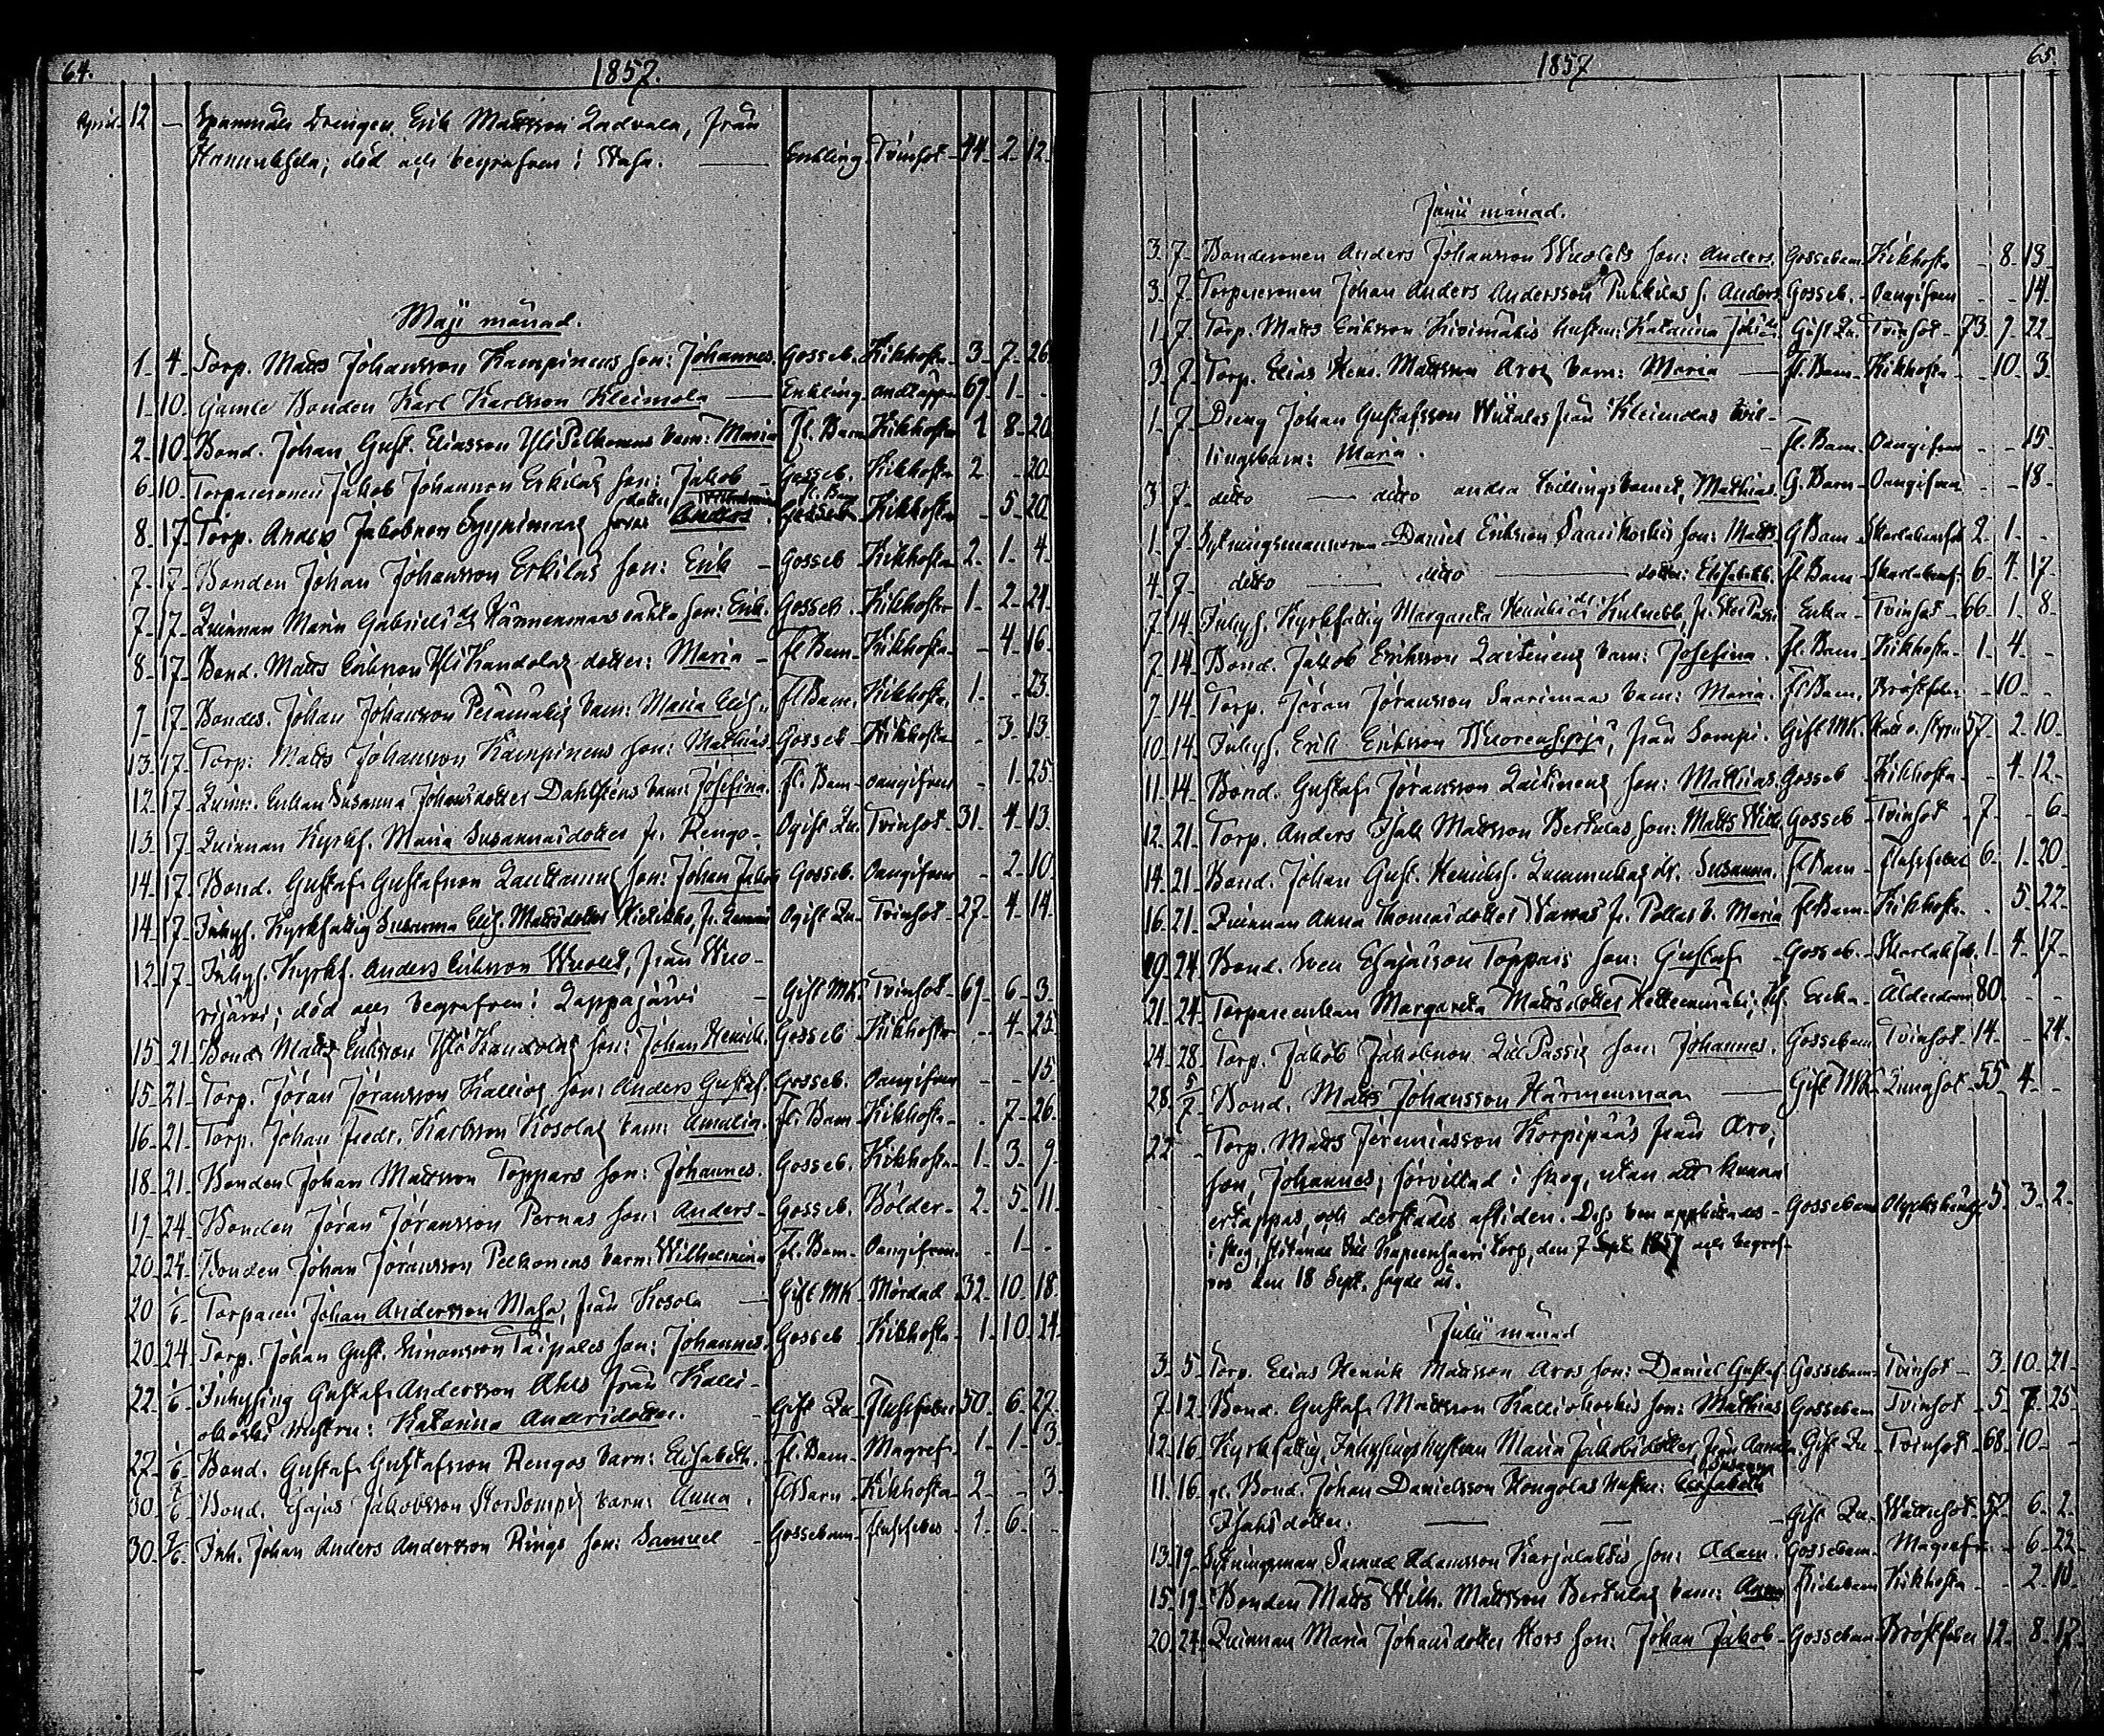 64.
1857.
April 12 — Spanmåls Drengen Erik Mattsson Ladvala, från
Hannuksela; död och begrafven i Wasa. — Enkling Tvinsot 44 2 12
Maji månad.
1 4 Torp. Matts Johansson Kampinens son: Johannes. Gosseb. Kikhosta 3 7 26
1 10 Gamle Bonden Karl Karlsson Kleimola — Enkling andtäppa 69 1 -
2 10 Bond. Johan Gust. Eliasson Yli Pelkonens barn: Maria Fl. Barn Kikhosta 1 8 20
6 10 Torparesonen Jakob Johansson Erkilas son: Jakob Gosseb. Kikhosta 2 - 20
8 17 Torp. Anders Jakobsson Syynimaas dotter Fl. Barn Kikhosta - 5 20
7 17 Bonden Johan Johansson Erkilas son: Erik Gosseb Kikhosta 2 1 4
7 17 Quinnan Maria Gabriels dr Hannenmaas son: Erik. Gosseb. Kikhosta 1 2 24
8 17 Bond. Matts Eriksson Yli Kandolas dotter: Maria Fl Barn Kikhosta - 4 16
9 17 Bondes. Johan Johansson Perämäkis barn: Maria Elis. Fl Barn. Kikhosta. 1 - 23
13 17 Torp: Matts Johansson Kampinens son: Mathias Gosseb Kikhosta - 3 13
12 17 Quin. Enkan Susanna Johansdotter Dahlstens barn: Josefina. Fl. Barn oangifven - 1 25
13 17 Quinnan Kyrkf. Maria Susannasdotter fr. Rengo. Ogift Qu. Tvinsot 31 4 13
14 17 Bond. Gustaf Gustafsson Lauttamus son: Johan Jakob Gosseb. Oangifven - 2 10
14 17 Inhys. Kyrkfattig Susanna Elis. Mattsdotter Ogift Qu Tvinsot 27 4 14
12 17 Inhys. Kyrkf. Anders Eriksson Wuolet, från Wuo-
rijärvi; död och begrafven i Lappajärvi Gift MK. Tvinsot 69 6 3
15 21 Bond. Matts Eriksson Yli Kandolas son: Johan Henrik. Gosseb Kikhosta - 4 25
15 21 Torp. Jöran Jöransson Kallios son: Anders Gustaf. Gosseb. Oangifven - - 15
16 21 Torp. Johan Fredr. Karlsson Kosolas barn: Amalia. Fl. Barn Kikhosta - 7 26
18 21 Bonden Johan Mattsson Toppars son: Johannes. Gosseb. Kikhosta 1 3 9
19 24 Bonden Jöran Jöransson Pernas son: Anders Gosseb. Bölder 2 5 11
20 24 Bonden Johan Jöransson Pelkonens barn: Wilhelmina Fl. Barn Oangifven - 1 -
20 1/6 Torparen Johan Andersson Masa, från Kosola Gift MK Mördad 32 10 18
20 24 Torp. Johan Gust. Simonsson Taipales son: Johannes. Gosseb Kikhosta 1 10 24
22 1/6 Inhysing Gustaf Andersson Ahls från Kalli-
okoski hustru: Katarina Andersdotter. Gift Qu Flussfeber 50 6 27
27 1/6 Bond. Gustaf Gustafsson Rengos barn: Elisabeth. Fl. Barn Magref. 1 1 3
30 7/6 Bond. Esajas Jakobsson StorSompis barn: Anna. Fl Barn Kikhosta 2 - 3
30 7/6 Inh. Johan Anders Andersson Rings son: Samuel Gossebarn Flussfeber 1 6 -
1857
65.
Junii månad.
3 7 Bondesonen Anders Johansson Wuolets son: Anders. Gossebarn Kikhosta - 8 13
3 7 Torparesonen Johan Anders Andersson Puhkilas s. Anders Gosseb. Oangifven - - 14
1 7 Torp. Matts Eriksson Kivimäkis hustru: Katarina Joh:dr. Gift Qu. Tvinsot 73 7 22
3 7 Torp. Elias Hen. Mattsson Aros barn: Maria — Fl. Barn Kikhosta - 10 3
1 7 Dreng Johan Gustafsson Wiitalas från Kleimolas tvil-
lingebarn: Maria. Fl. Barn Oangifven - - 15
3 7 ditto — ditto andra tvillingsbarnet, Mathias. G. Barn Oangifven - - 18
1 7 Sytningsmannen Daniel Eriksson Saarikoskis son: Matts G Barn Skarlakansfeb 2 1 -
4 7 ditto — ditto — dotter: Elisabeth. Fl Barn Skarlakansf 6 4 17
7 14 Inhys. Kyrkfattig Margareta Henriks dr Enka Tvinsot 66 1 8
7 14 Bond. Jakob Eriksson Laitinens barn: Josefina. Fl. Barn Kikhosta 1 4 -
7 14 Torp. Jöran Jöransson Saarimaas barn: Maria. Fl Barn. Bröstfeber - 10 -
10 14 Inhys. Erik Eriksson Wuorensyrjä, från Sompi. Gift MK. 57 2 10
11 14 Bond. Gustaf Jöransson Laitinens son: Mathias. Gosseb Kikhosta - 4 12
12 21 Torp. Anders Isak Mattsson Bertulas son: Matts Wilh. Gosseb Tvinsot 7 - 6
14 21 Bond. Johan Gust. Henrikss. Lummukas dr. Susanna. Fl Barn Flussfeber 6 1 20
16 21 Quinnan Anna Thomasdotter Wawas fr. Pollas b. Maria Fl Barn Kikhosta. - 5 22
19 24 Bond. Sven Esajasson Toppars son: Gustaf Gosseb. Skarlak.feb. 1 4 17
21 24 Torpareenkan Margareta Mattsdotter Enka Ålderdom 80 - -
24 28 Torp. Jakob Jakobsson LillPassis son: Johannes. Gossebarn Tvinsot 14 - 24
28 5/7 Bond. Matts Johansson Härmenmaa — Gift MK Lungsot 55 4 -
22 - Torp. Matts Jeremiasson Korpipääs från Aro,
son, Johannes; förvillad i skog, utan att kunna
ertappas, och derstädes afliden. Dess ben upphittades Gossebarn Olyckshänd. 5 3 2
i skog, den 7 Sept. 1857 och begrof-
vos den 18 Sept. sagde år.
Julii månad
3 5 Torp. Elias Henrik Mattsson Aros son: Daniel Gustaf Gossebarn Tvinsot 3 10 21
7 12 Bond. Gustaf Mattsson Kalliokoskis son: Mathias Gossebarn Tvinsot 5 7 25
12 16 Kyrkfattig, Inhysingshustrun Maria Jakobsdotter från Gift Qu Tvinsot 68 10 -
11 16 gl. Bond. Johan Danielsson Kongolas hustru: Susanna
Isaksdotter. — Gift Qu Wattusot 57 6 2
13 19 Sytningsman Samuel Adamsson Karjalaktis son: Adam. Gossebarn Magref - 6 22
15 19 Bonden Matts Wilh. Mattsson Bertulas barn: Anna Flickebarn Kikhosta - 2 10
20 24 Quinnan Maria Johansdotter Kors son: Johan Jakob Gossebarn Bröstfeber 12 8 17